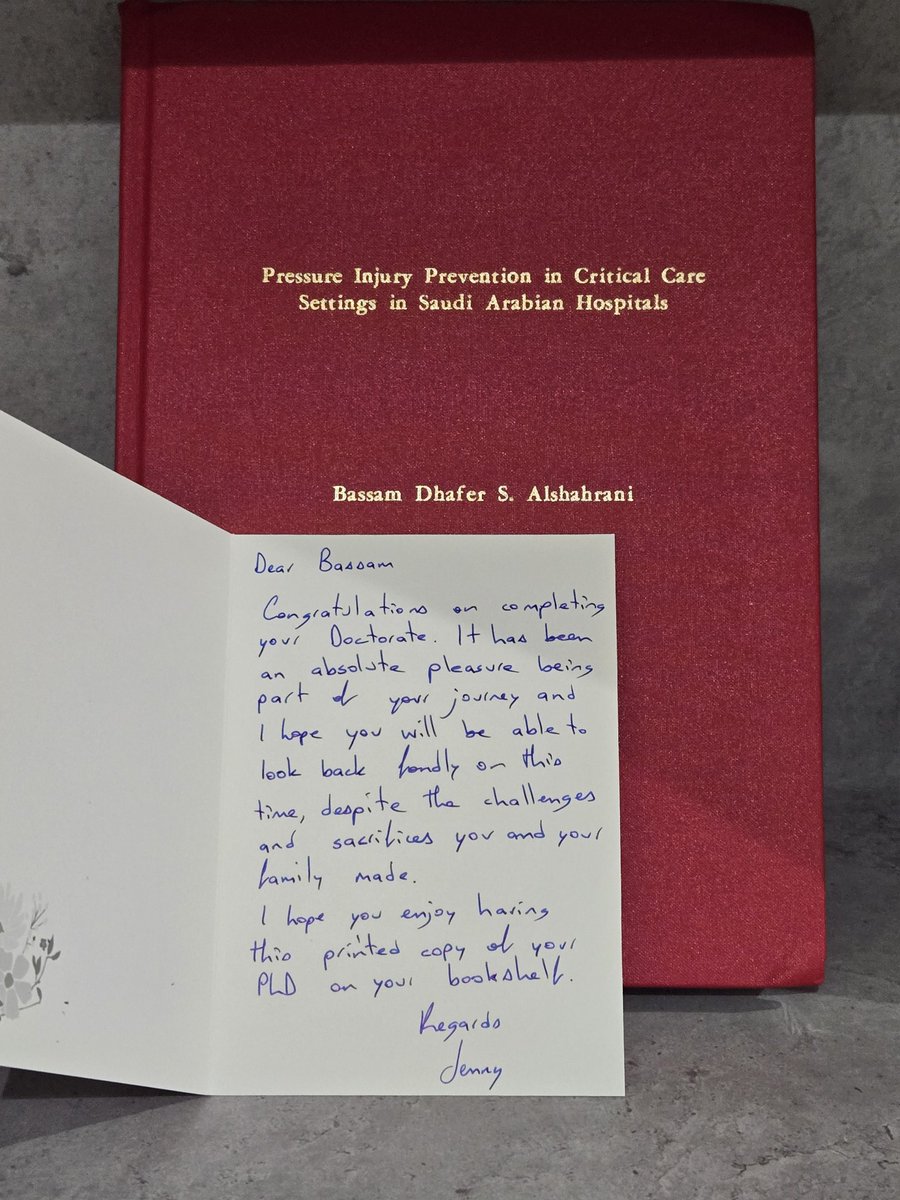 Pressure Injury Prevention in Critical Care
Settings in Saudi Arabian Hospitals
Bassam Dhafer S. Alshahrani
Dear Bassam
Congratulations on completing
your Doctorate. It has been
an absolute pleasure being
part of your journey and
I hope you will be able to
look back fondly on this
time, despite the challenges
and sacrifices you and your
family made.
I hope you enjoy having
this printed copy of your
PhD on your bookshelf.
Regards
Jenny